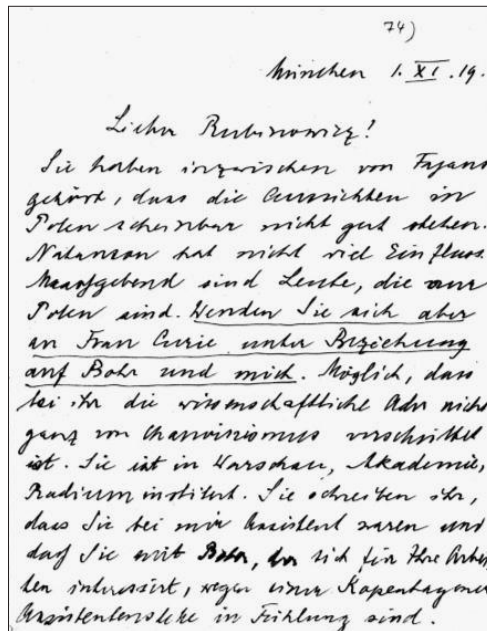 74)
München 1. XI. 19.
Lieber Rubinowicz!
Sie haben inzwischen von Fajans
gehört, dass die Aussichten in
Polen scheinbar nicht gut stehen.
Natanson hat nicht viel Einfluss.
Maassgebend sind Leute, die nur
Polen sind. Wenden Sie sich aber
an Frau Curie unter Beziehung
auf Bohr und mich. Möglich, dass
bei ihr die wissenschaftliche Ader nicht
ganz von Chauvinismus verschüttet
ist. Sie ist in Warschau, Akademie,
Radiuminstitut. Sie schreiben ihr,
dass Sie bei mir Assistent waren und
dass Sie mit Bohr, der sich für Ihre Arbei
ten interessirt, wegen einer Kopenhagener
Assistentenstelle in Fühlung sind.